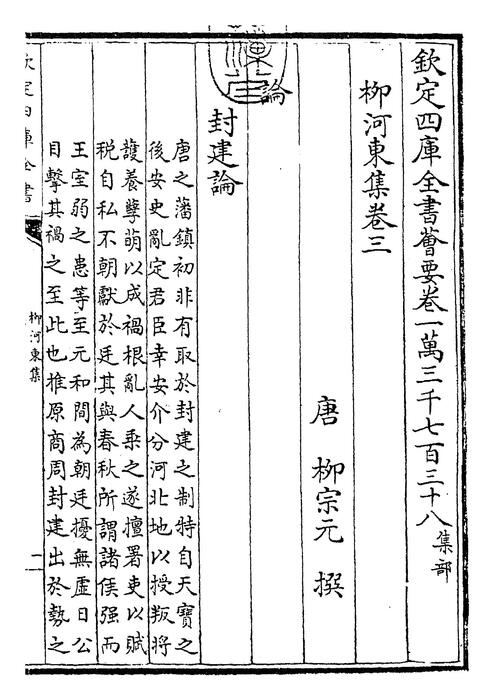 欽定四庫全書薈要卷一萬三千七百三十八集部
柳河東集卷三
唐 柳宗元 撰
論
封建論
唐之藩鎮初非有取於封建之制特自天寶之
後安史亂定君臣幸安介分河北地以授叛將
護養孽萌以成禍根亂人乘之遂擅署吏以賦
税自私不朝獻於廷其與春秋所謂諸侯强而
王室弱之患等至元和間為朝廷擾無虚日公
目擊其禍之至此也推原商周封建出於勢之
欽定四庫全書
柳河東集
一